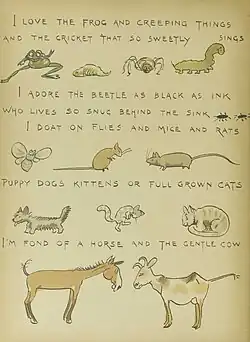 I LOVE THE FROG AND CREEPING THINGS
AND THE CRICKET THAT SO SWEETLY SINGS
I ADORE THE BEETLE AS BLACK AS INK
WHO LIVES SO SNUG BEHIND THE SINK
I DOAT ON FLIES AND MICE AND RATS
PUPPY DOGS KITTENS OR FULL GROWN CATS
I'M FOND OF A HORSE AND THE GENTLE COW